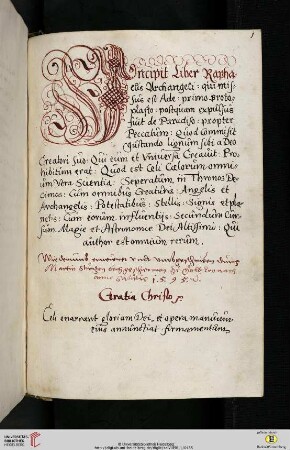 1
Incipit Liber Rapha
elis Archangeli: qui mis
sus est Ade: primo proto
plasto: postquam expulsus
fuit de Paradiso: propter
Peccatum: Quod commisit
Gustando lignum sibi a Deo
Creatori suo: Qui eum et Vniuersa Creauit: Pro
hibitum erat: Quod est Celi Celorum omni
um Vera Scientia: Seperatum in Thronos De
cimos: Cum omnibus Creaturis: Angelis et
Archangelis: Potestatibus: Stellis: Signis et pla
netis: Cum eorum influentijs: Secundum Cur
sum Magie et Astronomie Dei Altissimi: Qui
author est omnium rerum.
Gratia Christo
Celi enarrant gloriam Dei, et opera manuum
eius annunctiat firmamentum.